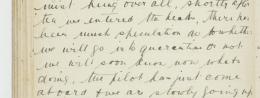 must hung over all, shortly after
tea we entered the heads, there has
been much speculation as to whether
we will go into quarantine or not
we will soon know now whats
doing, the pilot has just come
aboard & we are slowly going up